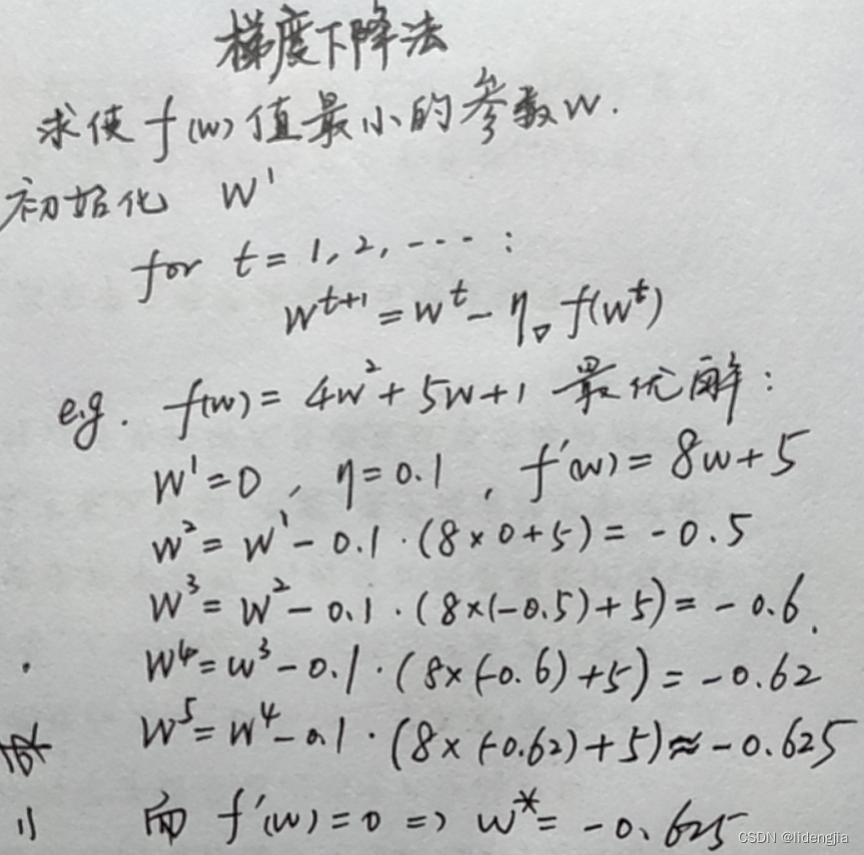 梯度下降法
求使 f(w) 值最小的参数w.
初始化 w¹
for t = 1, 2, ---- :
w^{t+1} = w^t - η▽f(w^t)
e.g. f(w) = 4w² + 5w + 1 最优解:
w¹ = 0 , η = 0.1 , f'(w) = 8w + 5
w² = w¹ - 0.1 · (8 × 0 + 5) = -0.5
w³ = w² - 0.1 · (8×(-0.5) + 5) = -0.6.
w⁴ = w³ - 0.1 · (8×(-0.6) + 5) = -0.62
w⁵ = w⁴ - 0.1 · (8×(-0.62) + 5) ≈ -0.625
而 f'(w) = 0 => w* = -0.625
CSDN @lidengjia